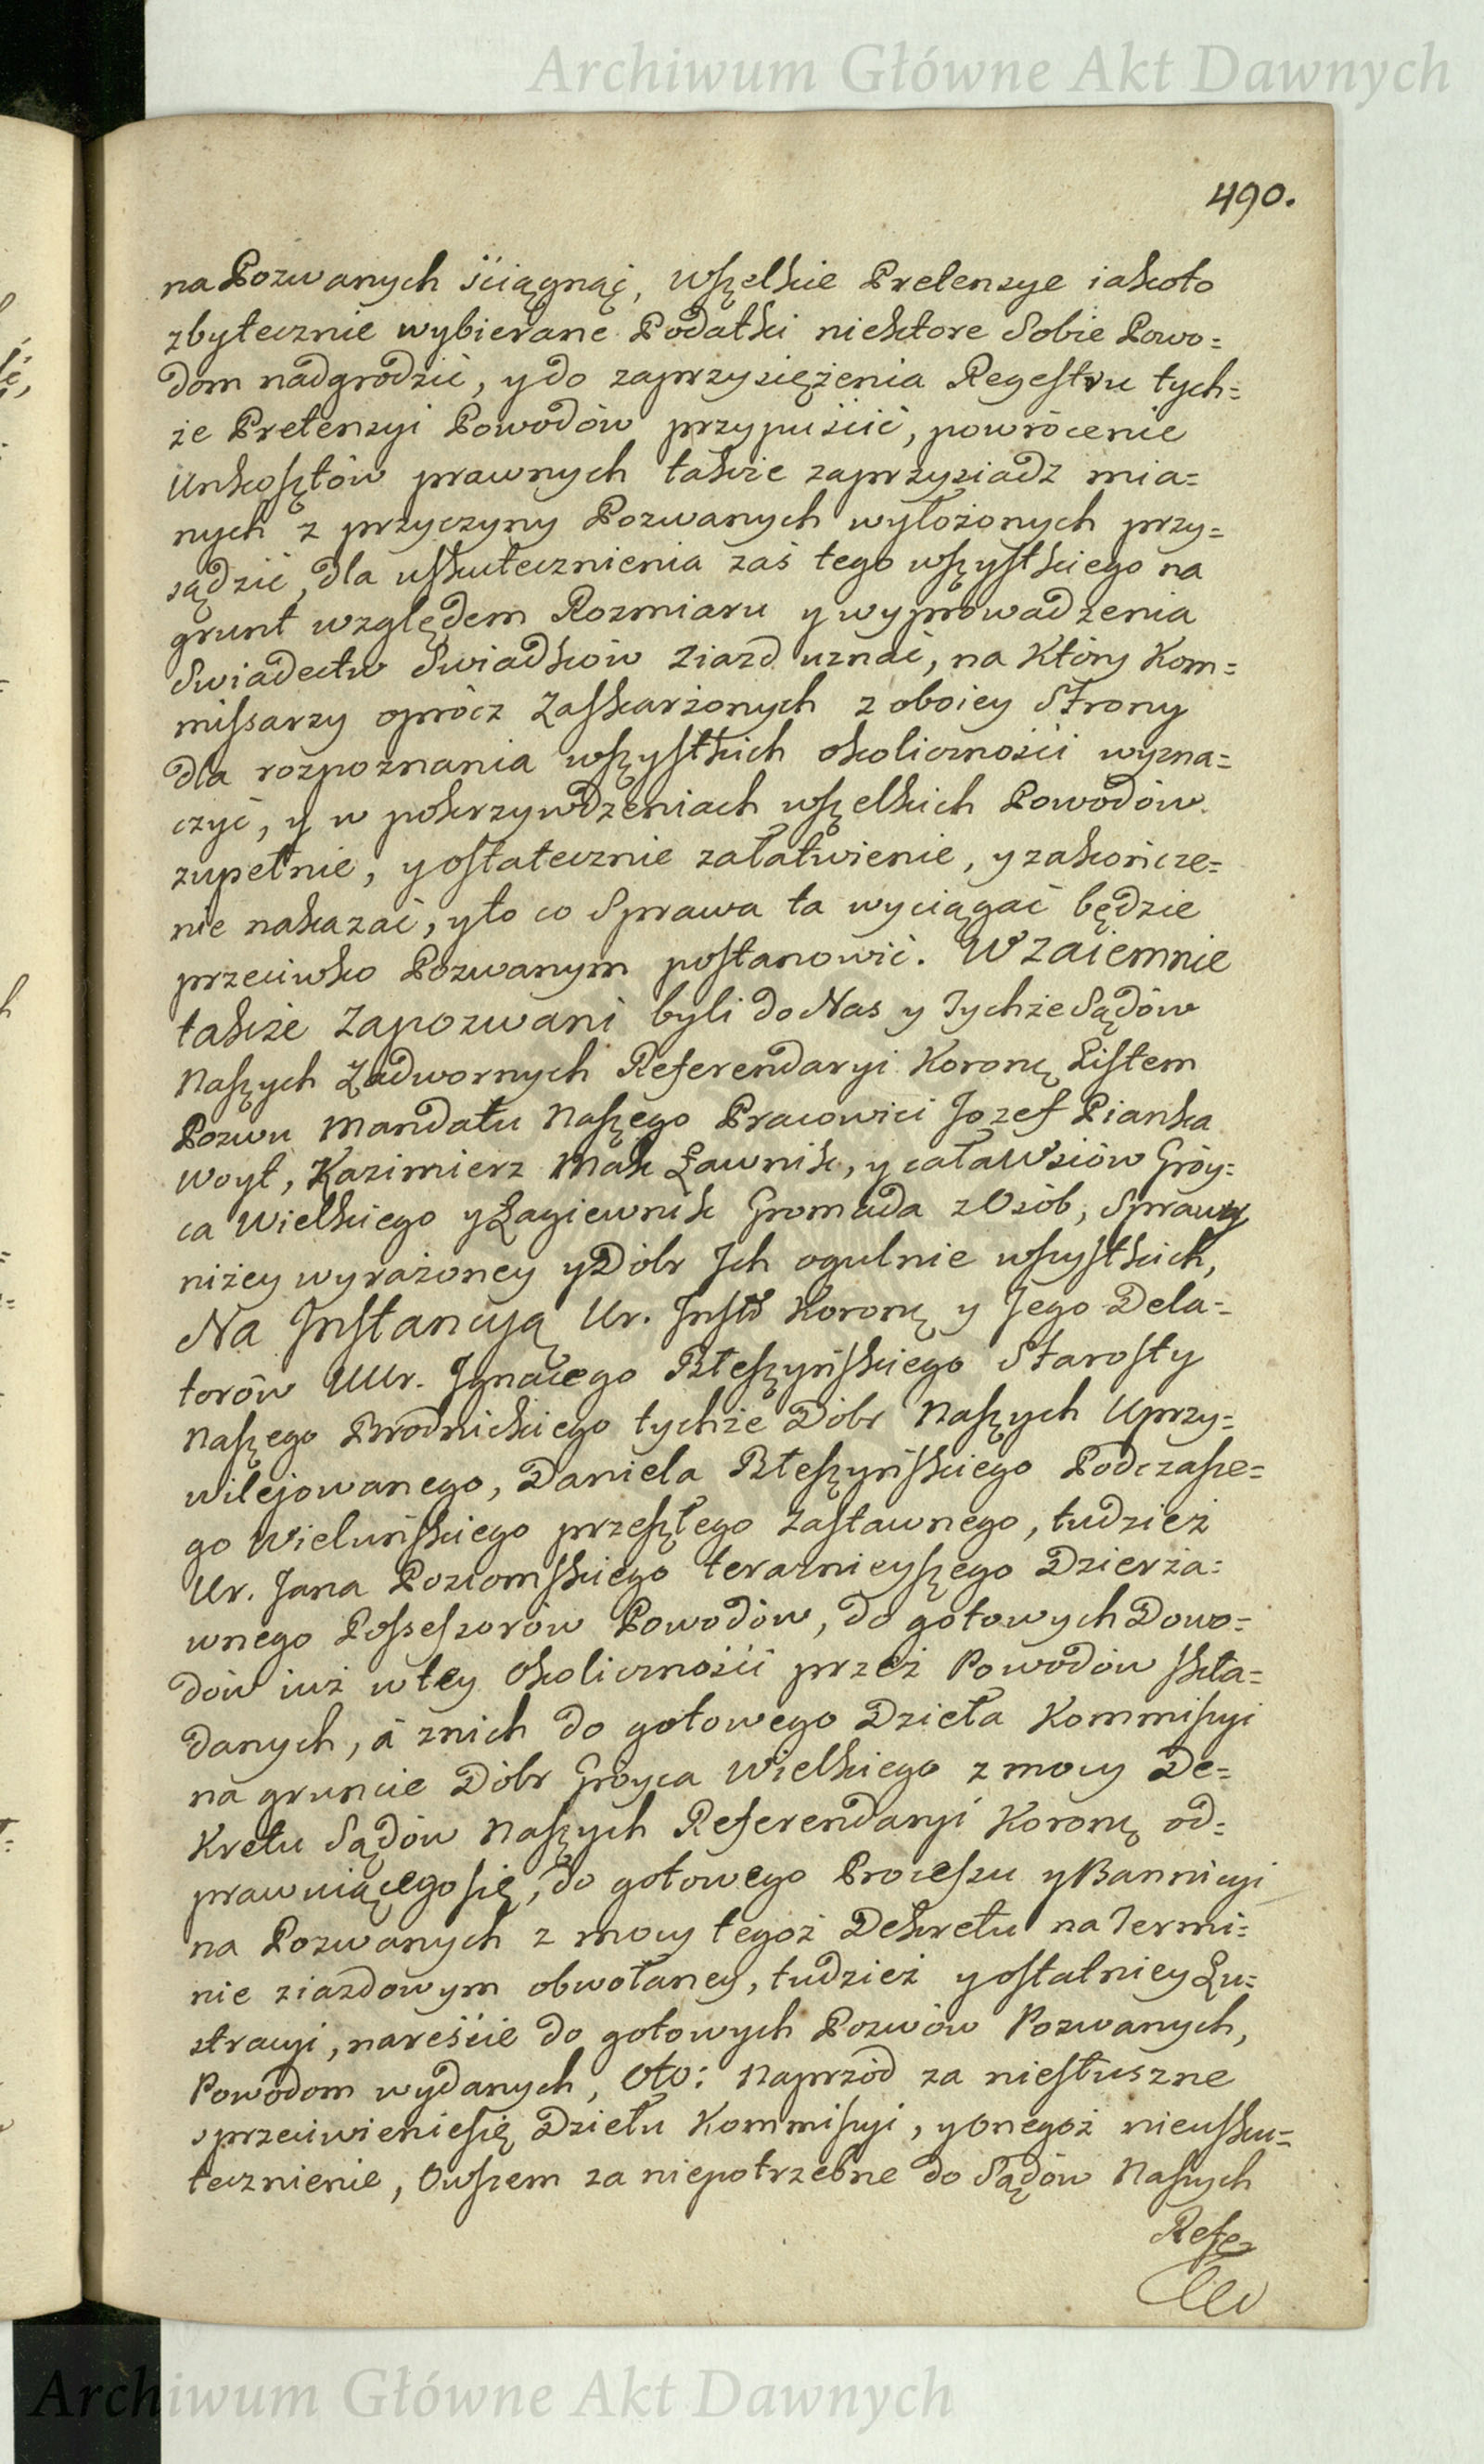 Archiwum Główne Akt Dawnych
490.
na Pozwanych ściągnąć, wszelkie Pretensye iakoto
zbytecznie wybierane Podatki niektore Sobie Powo=
dom nadgrodzić, y do zaprzysiężenia Regestru tych=
że Pretensyi Powodów przypuścić, powrócenie
Unkosztów prawnych także zaprzysiadz mia=
nych z przyczyny Pozwanych wyłożonych przy=
sądzić, dla uskutecznienia zaś tego wszystkiego na
grunt względem Rozmiaru y wyprowadzenia
Swiadectw Swiadków Ziazd uznać, na Który Kom=
missarzy oprócz Zaskarżonych z oboiey Strony
dla rozpoznania wszystkich okoliczności wyzna=
czyć, y w pokrzywdzeniach wszelkich Powodów
zupełnie, y ostatecznie załatwienie, y zakończe=
nie nakazać, y to co Sprawa ta wyciągać będzie
przeciwko Pozwanym postanowić. Wzaiemnie
także Zapozwani byli do Nas y Tychże Sądów
Naszych Zadwornych Referendaryi Koronę Listem
Pozwu Mandatu Naszego Pracowici Jozef Pianka
Woyt, Kazimierz Mak Ławnik, y cała Wsiów Gróy=
ca Wielkiego y Łagiewnik Gromada z Osób, Sprawy
niżey wyrażoney y Dóbr Jch ogulnie wszystkich,
Na Jnstancyą Ur. Jnstő Koronę y Jego Dela=
torów UUr. Jgnacego Błeszyńskiego Starosty
Naszego Brodnickiego tychże Dóbr Naszych Uprzy=
wilejowanego, Daniela Błeszyńskiego Podczasze=
go Wieluńskiego przeszłego Zastawnego, tudzież
Ur. Jana Poziomskiego teraznieyszego Dzierża=
wnego Possessorów Powodów, do gotowych Dowo=
dów iuż w tey Okoliczności przez Powodów skła=
danych, á z nich do gotowego Dzieła Kommissyi
na gruncie Dóbr Gróyca Wielkiego z mocy De=
Kretu Sądów Naszych Referendaryi Koronę od=
prawuiącego się, do gotowego Processu y Bannicyi
na Pozwanych z mocy tegoż Dekretu na Termi=
nie ziazdowym obwołaney, tudzież y ostatniey Lu=
stracyi, nareście do gotowych Pozwów Pozwanych,
Powodom wydanych, Oto: Naprzód za niesłuszne
sprzeciwienie się Dziełu Kommissyi, y Onegoż nieusku=
tecznienie, Owszem za niepotrzebne do Sądów Naszych
Refe=
Archiwum Główne Akt Dawnych